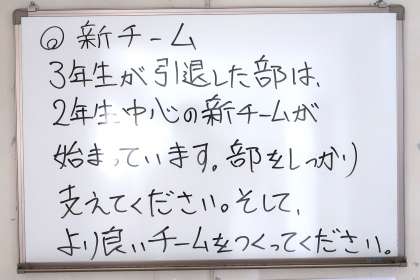 ◎ 新チーム
3年生が引退した部は、
2年生中心の新チームが
始まっています。部をしっかり
支えてください。そして、
より良いチームをつくってください。